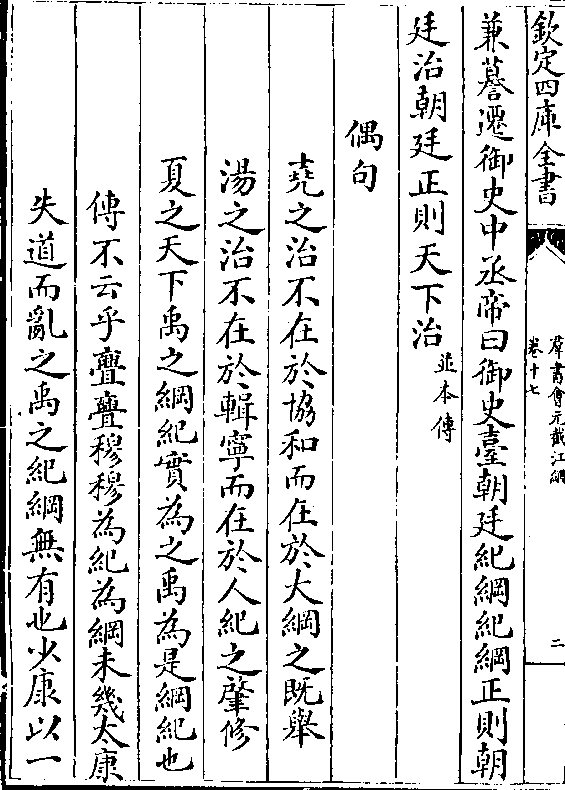 欽定四庫全書
羣書會元截江網
卷十七
二
兼謩遷御史中丞帝曰御史臺朝廷紀綱紀綱正則朝
廷治朝廷正則天下治並本傳
偶句
堯之治不在於協和而在於大綱之既舉
湯之治不在於輯寧而在於人紀之肇修
夏之天下禹之綱紀實為之禹為是綱紀也
傳不云乎亹亹穆穆為紀為綱未幾太康
失道而亂之禹之紀綱無有也少康以一